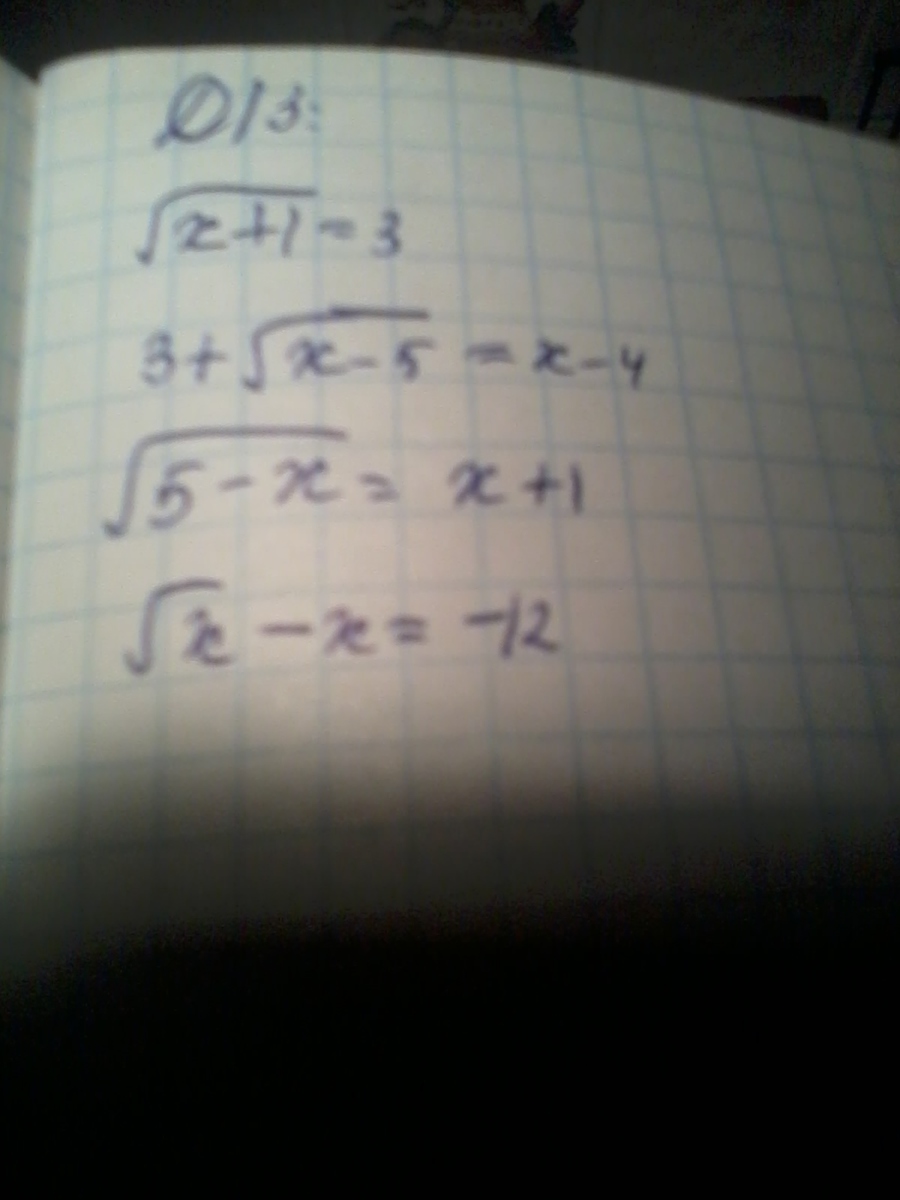 Д/З:
√(x+1) = 3
3+√(x-5) = x-4
√(5-x) = x+1
√x - x = -12